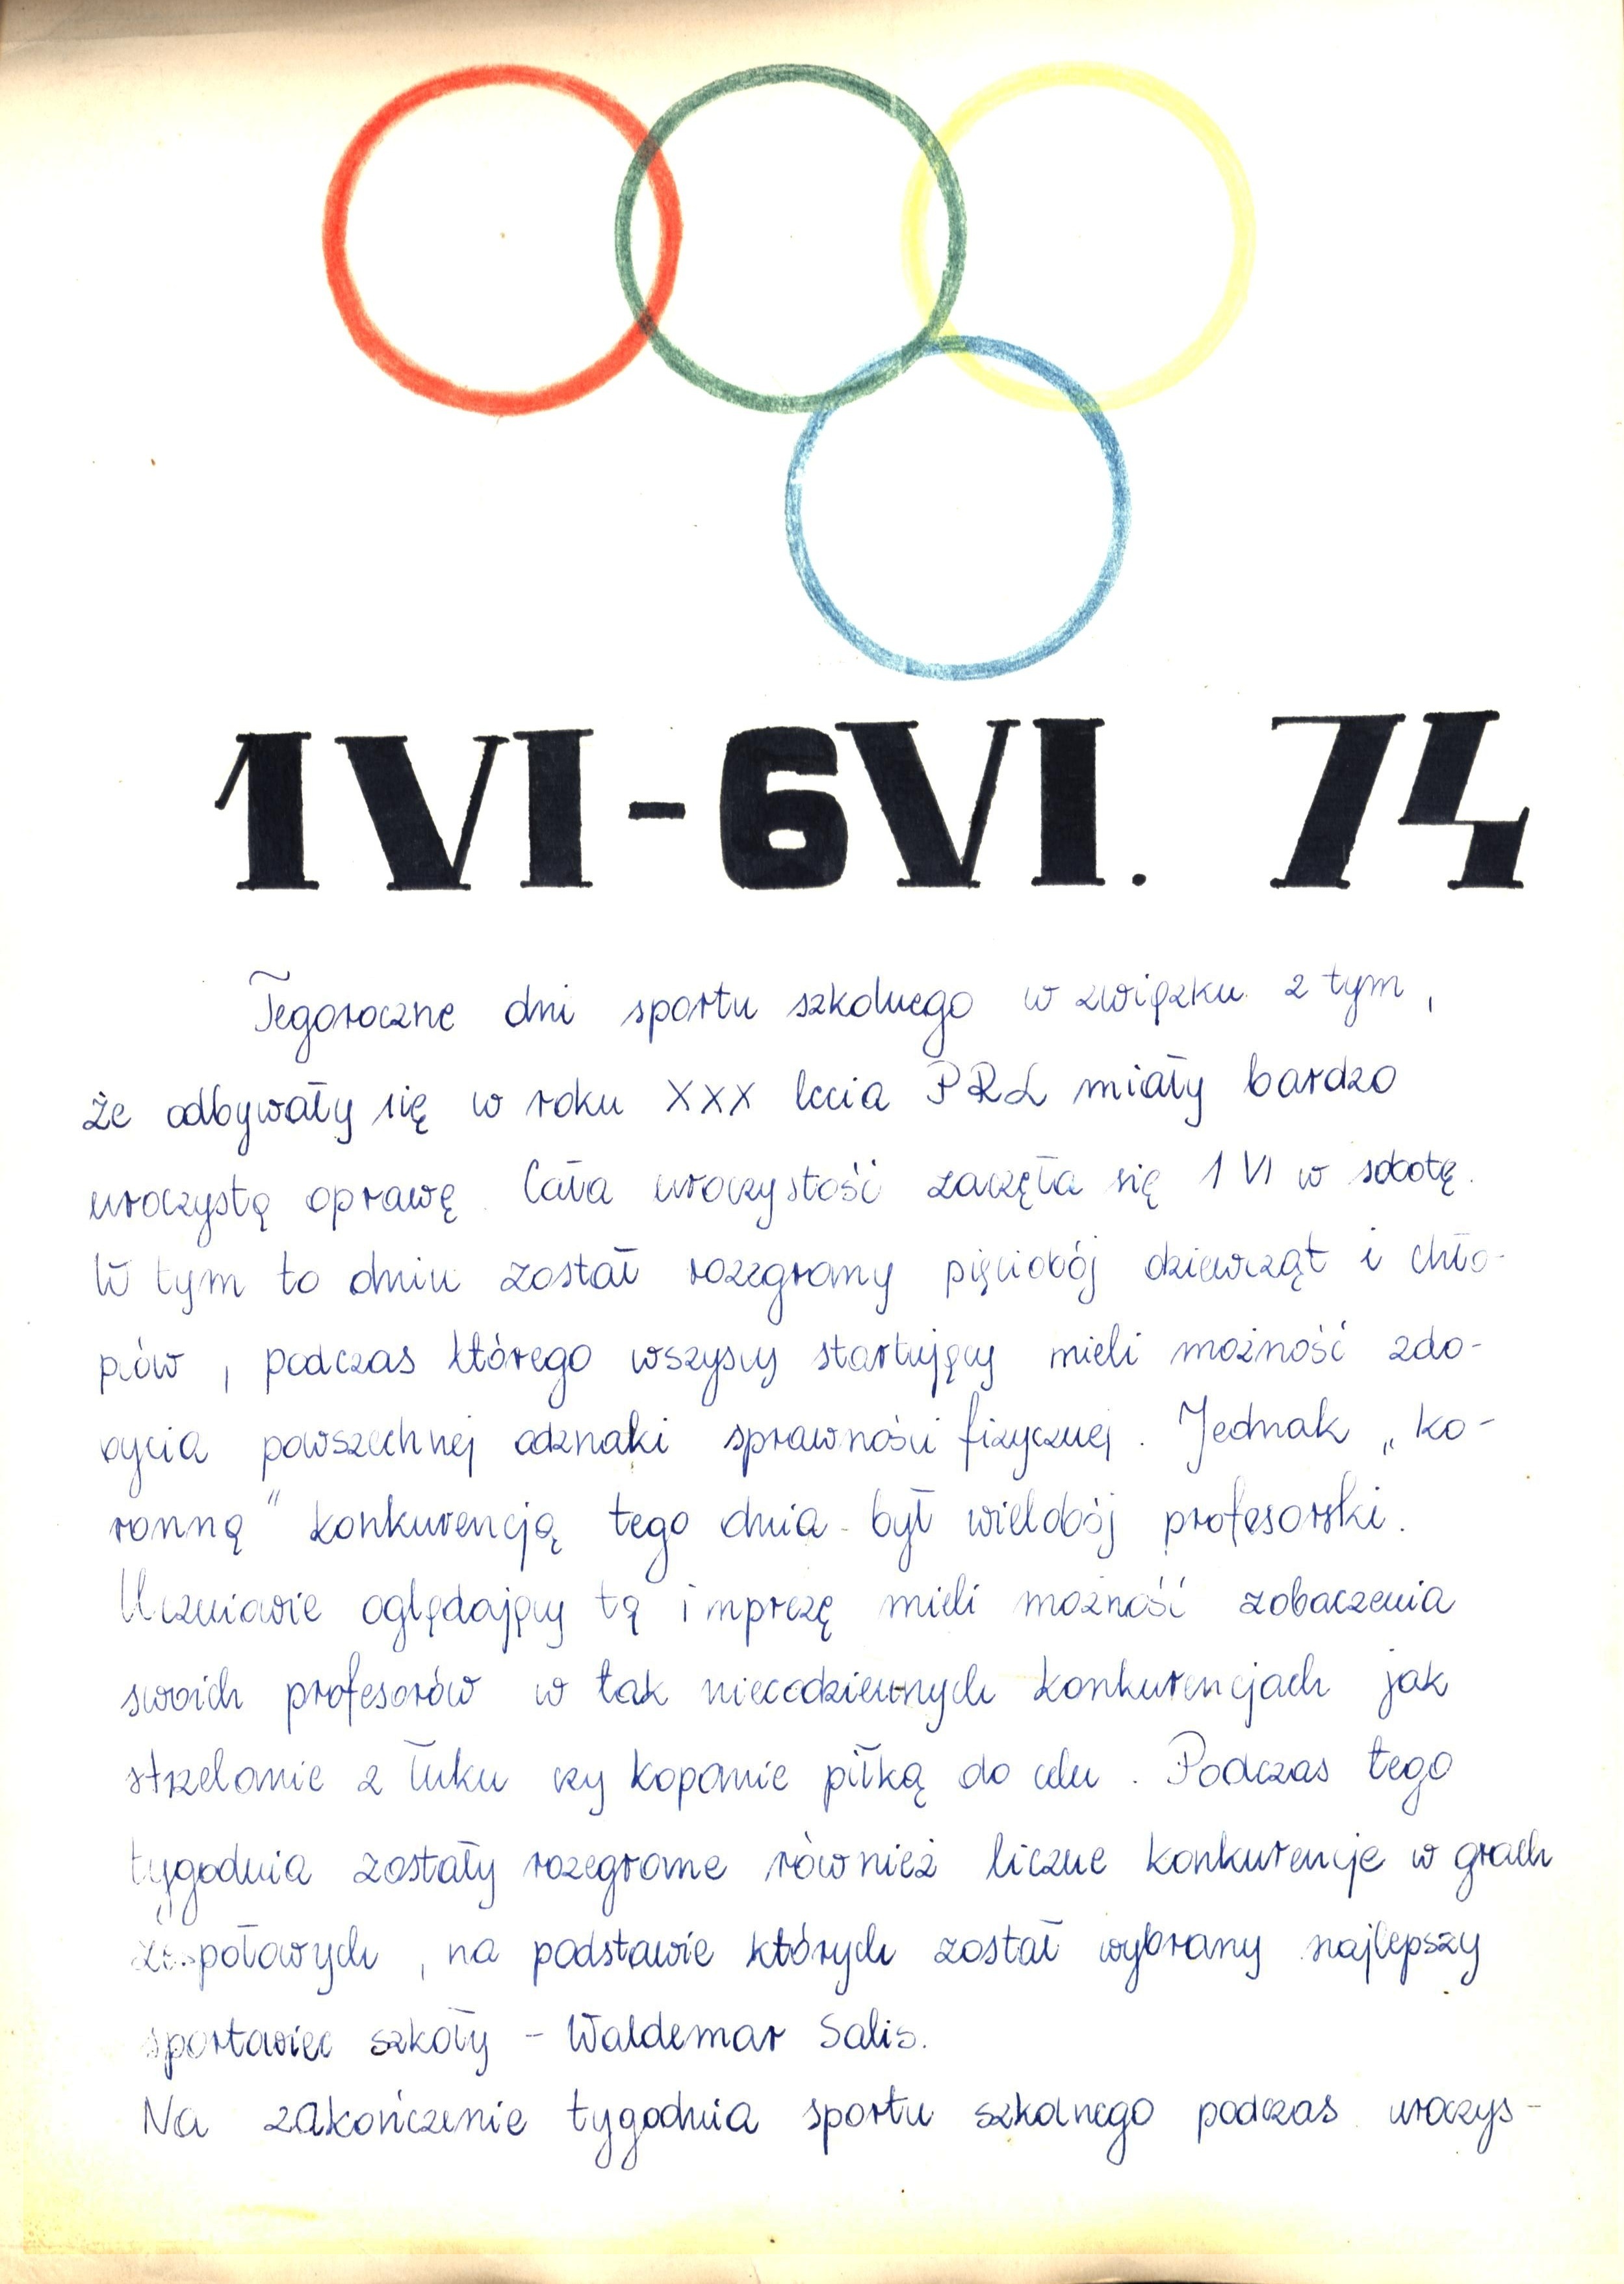 1 VI - 6 VI. 74
Tegoroczne dni sportu szkolnego w związku z tym,
że odbywały się w roku XXX lecia PRL miały bardzo
uroczystą oprawę. Cała uroczystość zaczęła się 1 VI w sobotę.
W tym to dniu został rozegrany pięciobój dziewcząt i chło-
pców, podczas którego wszyscy startujący mieli możność zdo-
bycia powszechnej odznaki sprawności fizycznej. Jednak „ko-
ronną” konkurencją tego dnia był wielobój profesorski.
Uczniowie oglądający tą imprezę mieli możność zobaczenia
swoich profesorów w tak niecodziennych konkurencjach jak
strzelanie z łuku czy kopanie piłką do celu. Podczas tego
tygodnia zostały rozegrane również liczne konkurencje w grach
zespołowych, na podstawie których został wybrany najlepszy
sportowiec szkoły - Waldemar Salis.
Na zakończenie tygodnia sportu szkolnego podczas uroczys-